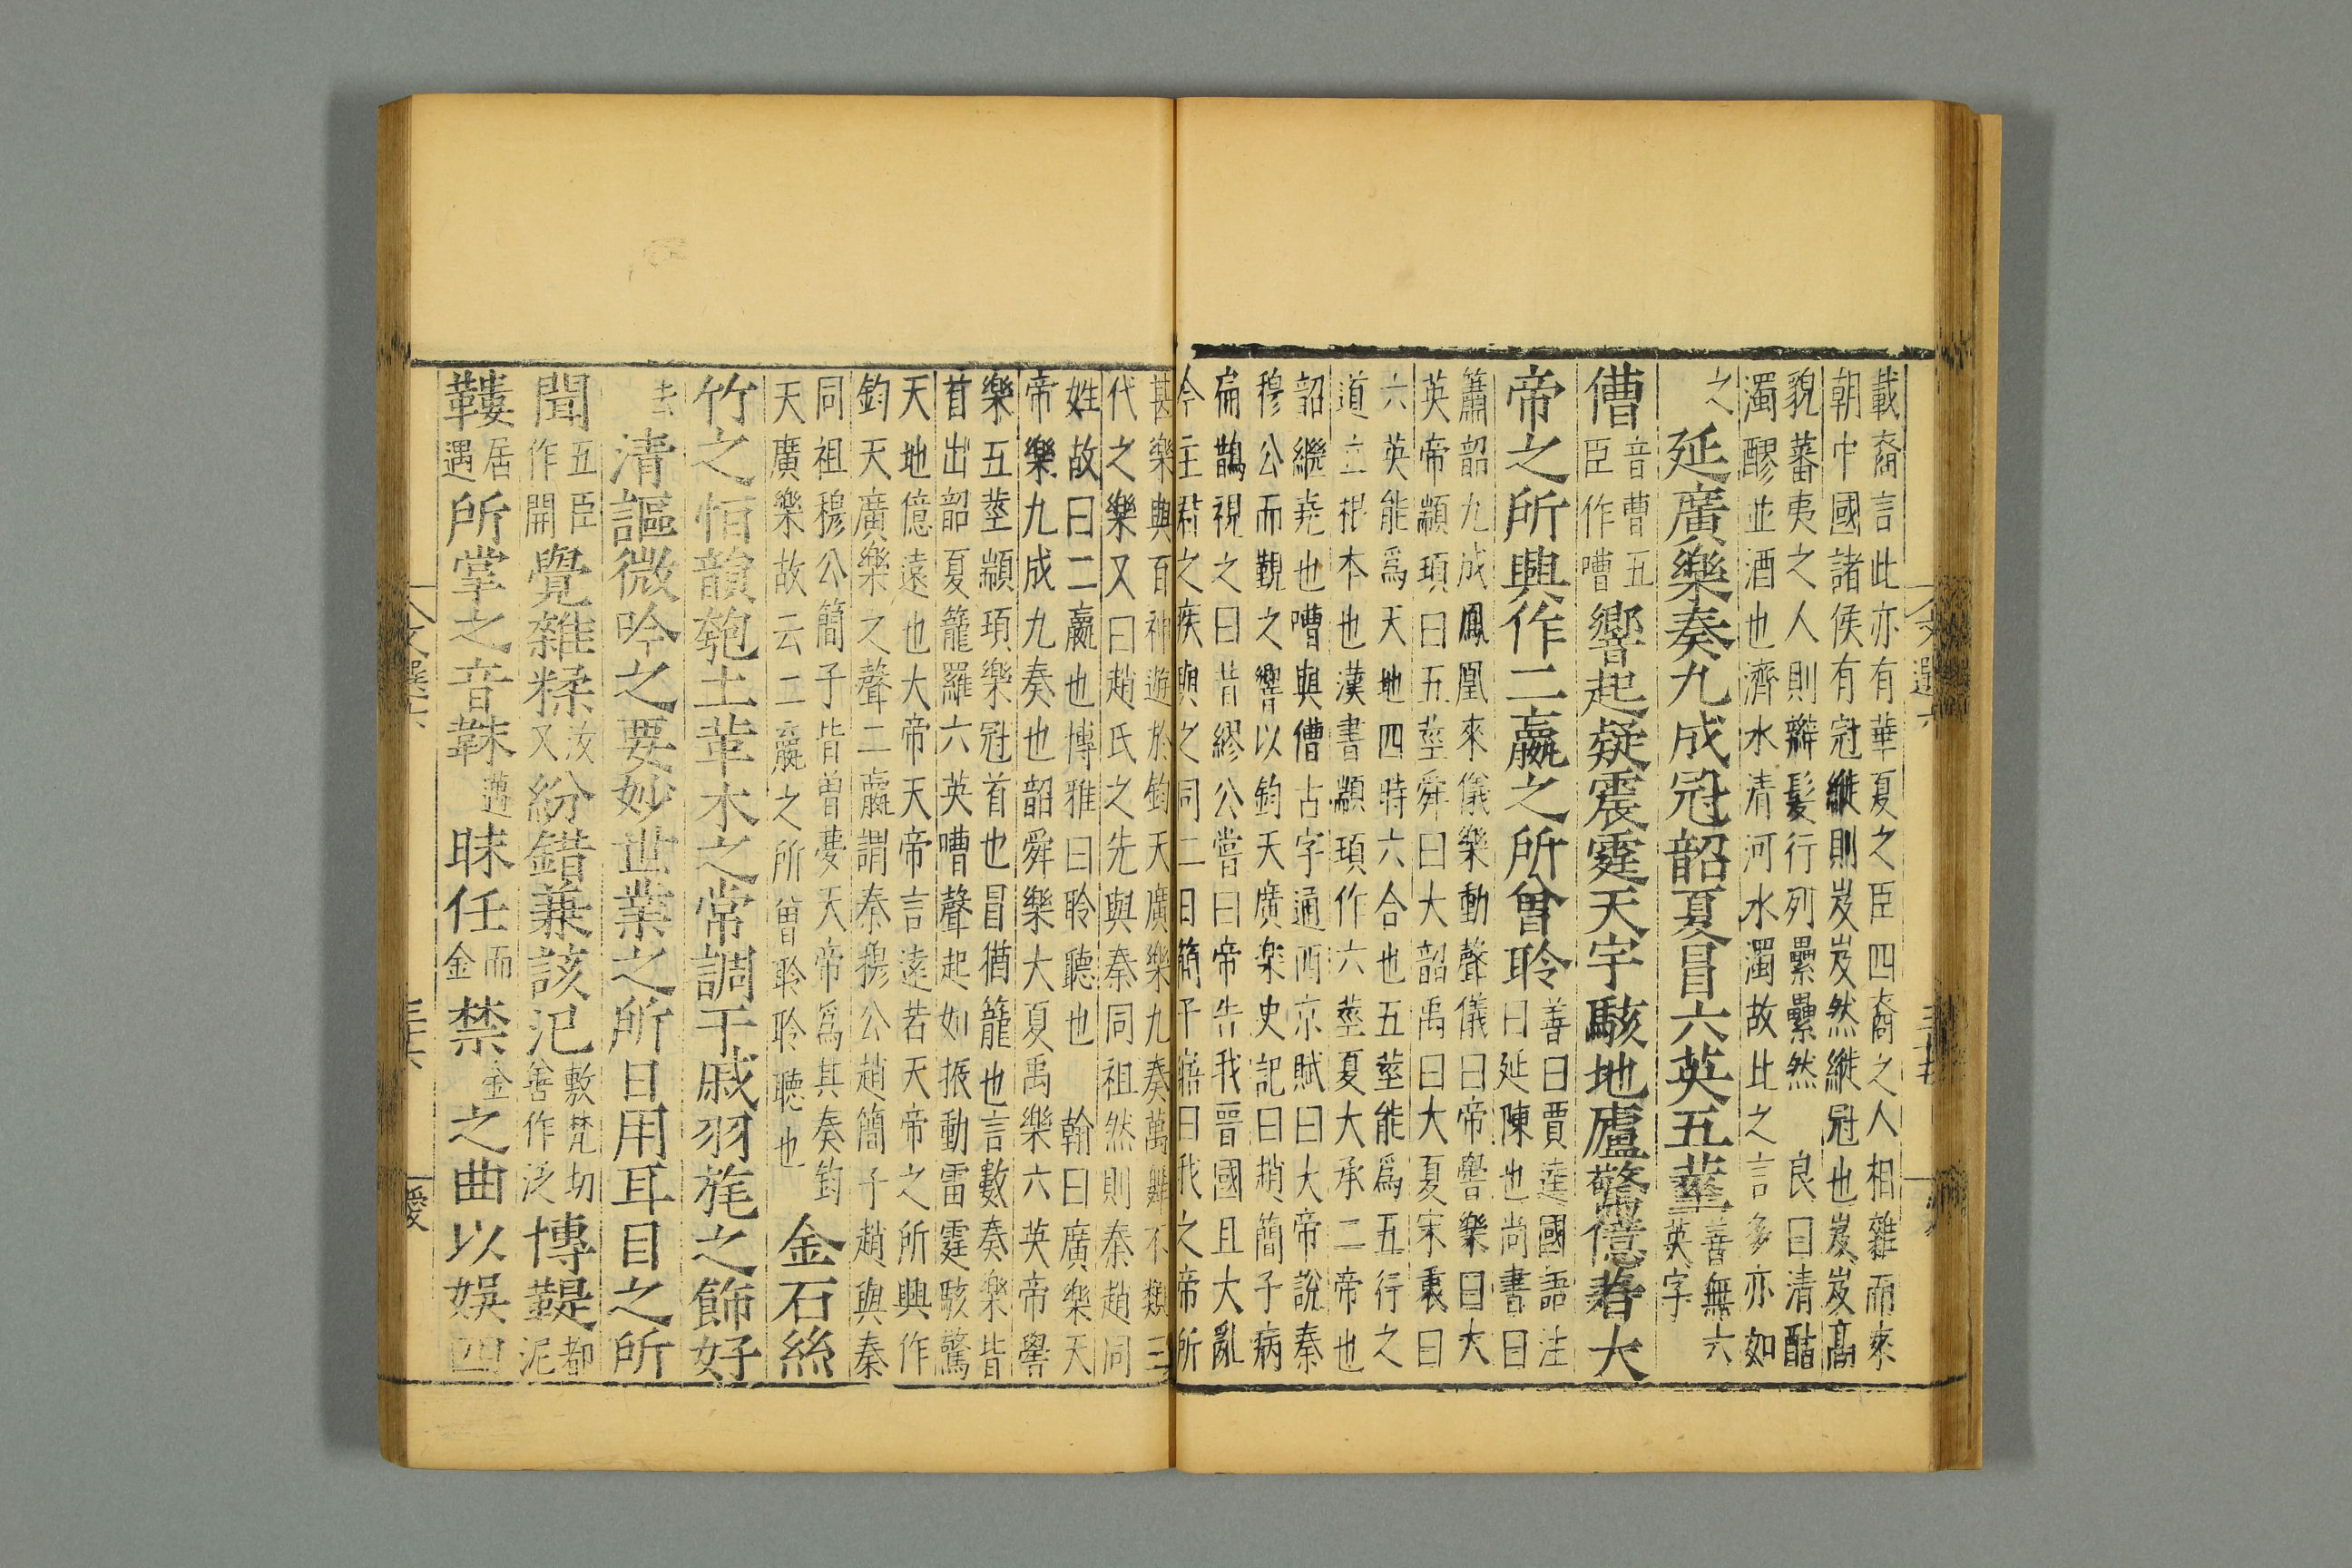 載裔言此亦有華夏之臣四裔之人相雜而來
朝中國諸侯有冠縰則岌岌然縰冠也岌岌高
貌蕃夷之人則辮髮行列纍纍然 良曰清酤
濁醪並酒也濟水清河水濁故比之言多亦如
之
延廣樂奏九成冠韶夏冒六英五莖
善無六
英字
傮
音曹五
臣作嘈
響起疑震霆天宇駭地廬驚億春大
帝之所興作二嬴之所曾聆
善曰賈逵國語注
曰延陳也尚書曰
簫韶九成鳳凰來儀樂動聲儀曰帝嚳樂曰大
英帝顓頊曰五莖舜曰大韶禹曰大夏宋衷曰
六英能為天地四時六合也五莖能為五行之
道立根本也漢書顓頊作六莖夏大承二帝也
韶繼堯也嘈與傮古字通西京賦曰大帝說秦
穆公而覲之響以鈞天廣楽史記曰趙簡子病
扁鵲視之曰昔繆公嘗曰帝告我晉國且大亂
今主君之疾與之同二日簡子寤曰我之帝所
甚樂與百神遊於鈞天廣樂九奏萬舞不類三
代之樂又曰趙氏之先與秦同祖然則秦趙同
姓故曰二嬴也博雅曰聆聽也 翰曰廣楽天
帝樂九成九奏也韶舜樂大夏禹樂六英帝嚳
樂五莖顓頊樂冠首也冒猶籠也言數奏楽皆
首出韶夏籠羅六英嘈聲起如振動雷霆駭驚
天地億遠也大帝天帝言遠若天帝之所興作
鈞天廣樂之聲二嬴謂秦穆公趙簡子趙與秦
同祖穆公簡子皆曽夢天帝為其奏鈞
天廣樂故云二嬴之所曾聆聆聽也
金石絲
竹之恒韻匏土革木之常調干戚羽旄之飾好
去
清謳微吟之要妙世業之所日用耳目之所
聞
五臣
作開
覺雜糅
汝
又
紛錯兼該汜
敷梵切
善作泛
博鞮
都
泥
鞻
居
遇
所掌之音韎
邁
昧任
而
金
禁
金
之曲以娛四